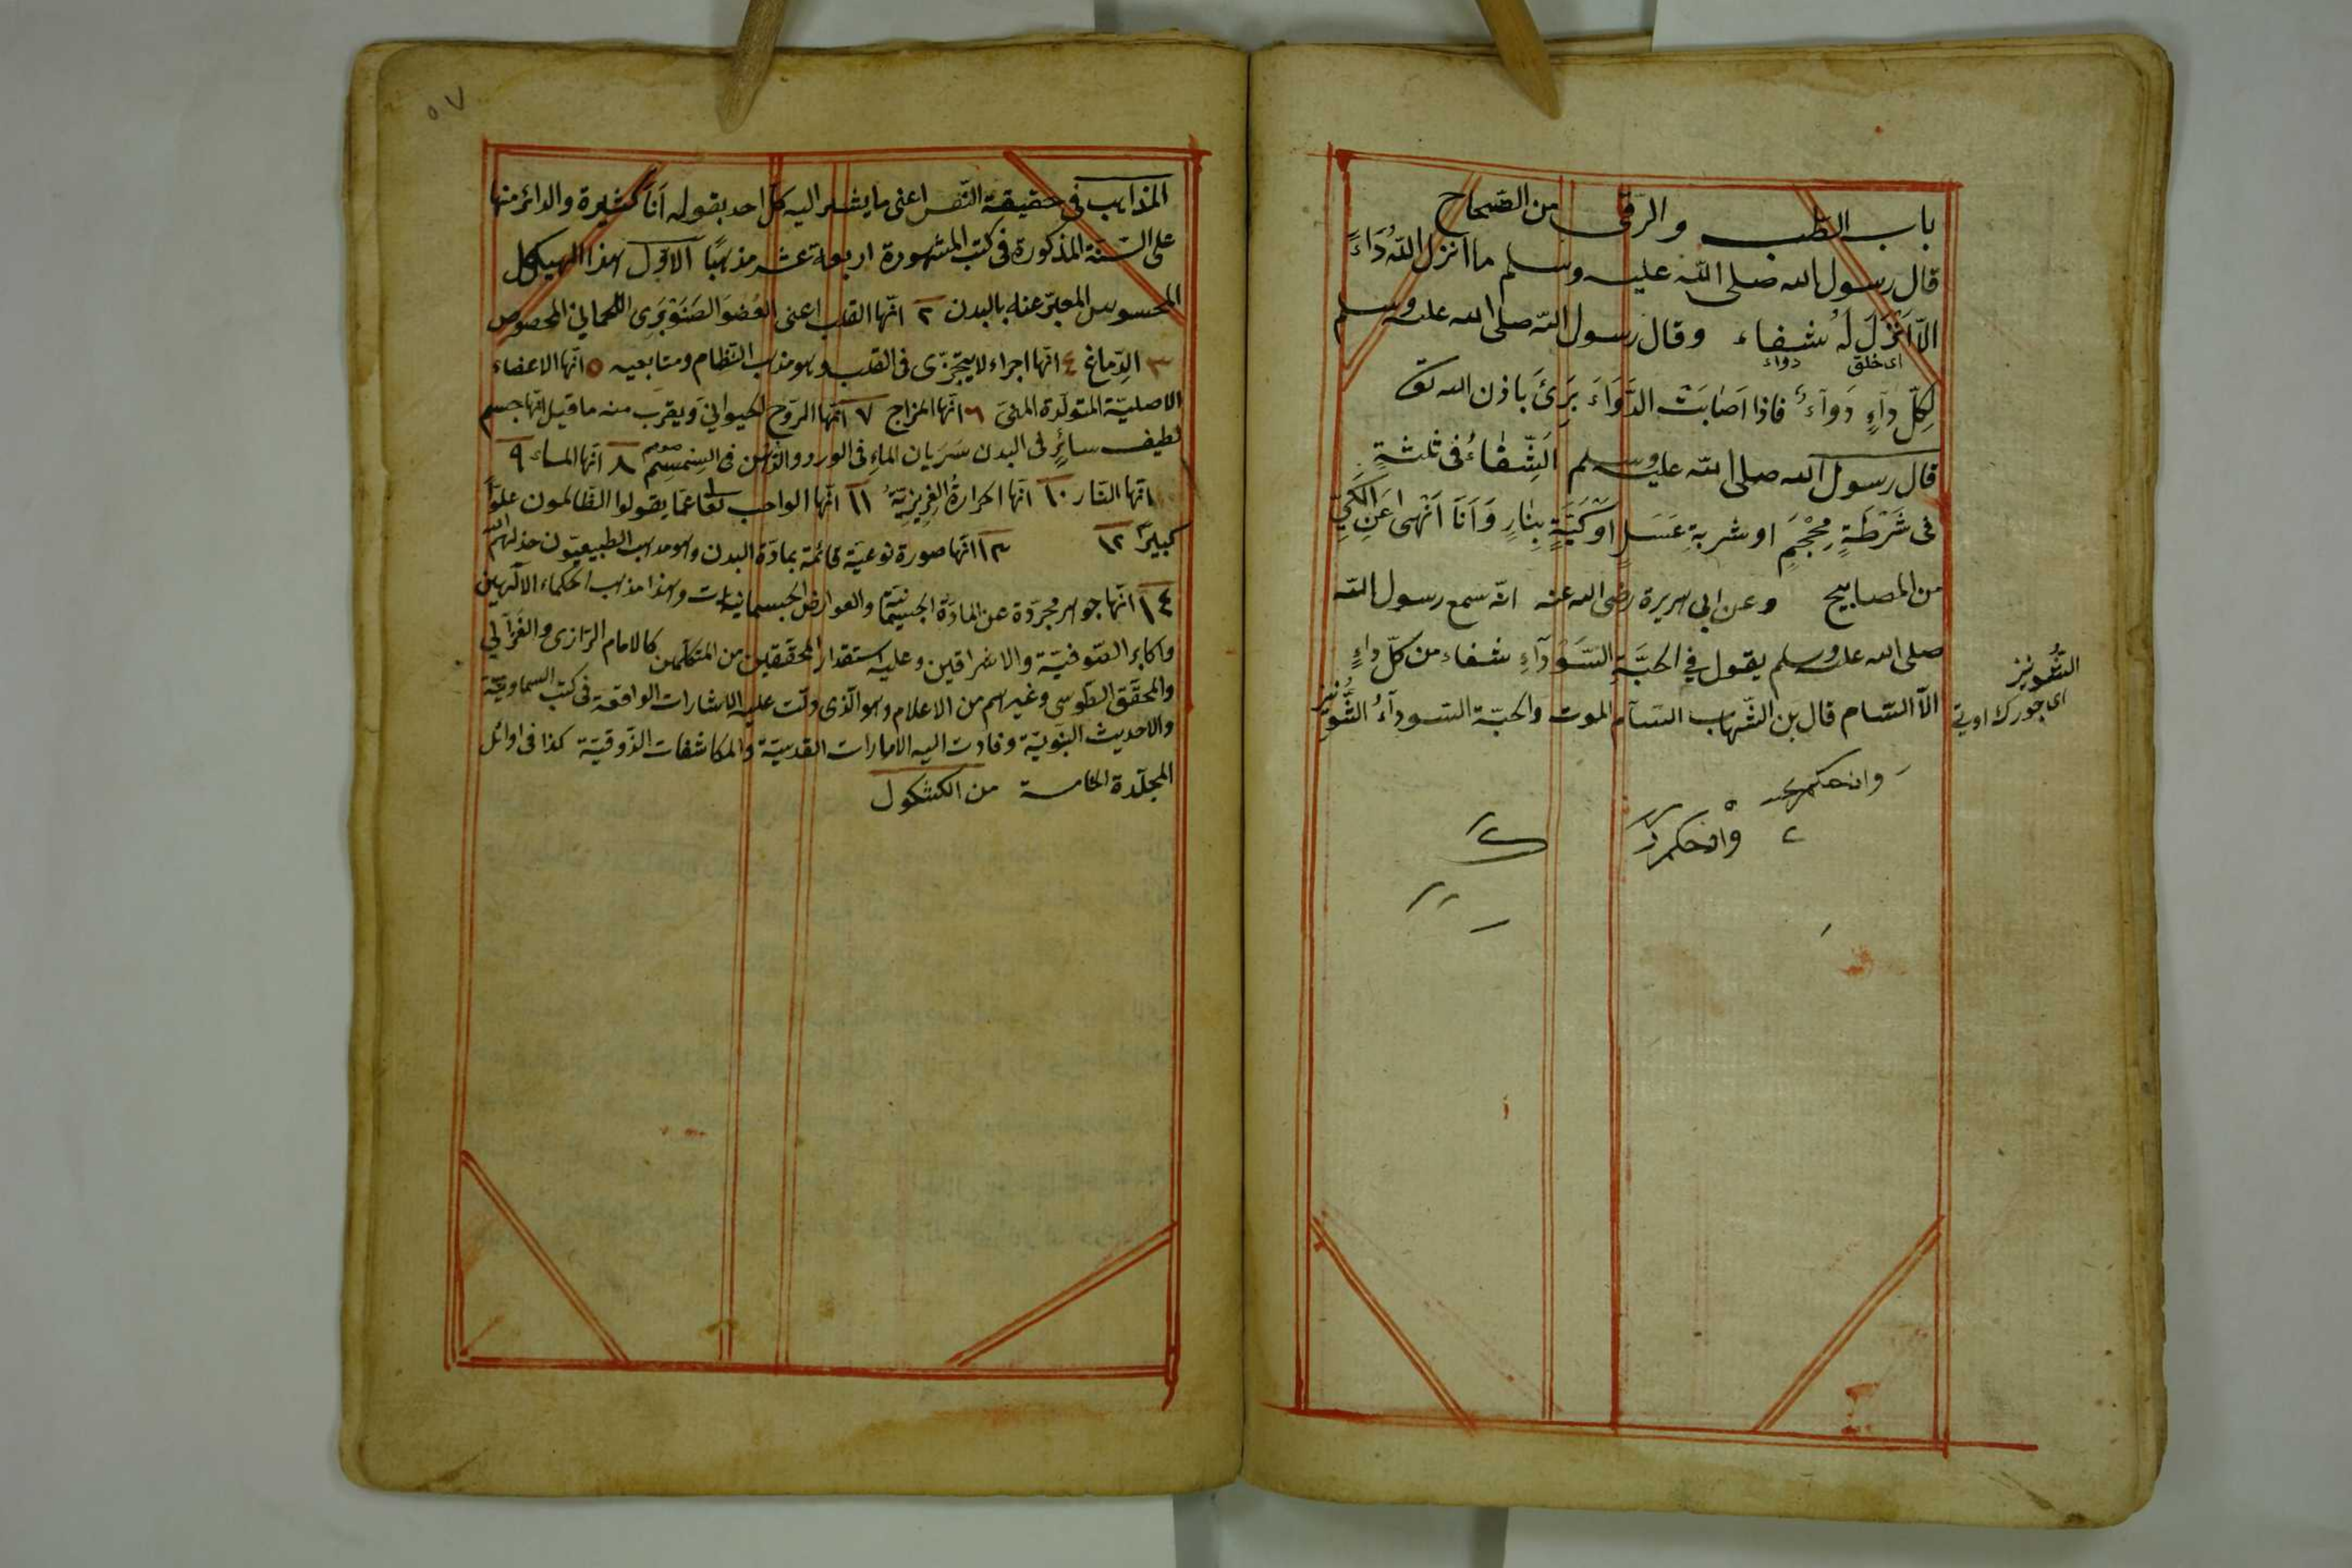 باب الطّب والرّقى من الصّحاح
قال رسول الله صلى الله عليه وسلم ما انزل الله دَاءً
الّا اَنْزَلَ لَهُ شفاء وقال رسول الله صلى الله عليه وسلم
اى خلق دواء
لِكلّ دآءٍ دَوآءٌ فاذا اَصَابَتْ الدَّوَاءَ بَرَئَ باذن الله تع
قال رسول الله صلى الله عليه وسلم اَلشِّفَاءُ فى ثلثةٍ
فى شَرْطَةٍ مِحْجَمٍ او شربةِ عَسَلٍ اوْكَيَّةٍ بِنارٍ وَاَنَا اَنْهى عَنِ الكَيِّ
من المصابيح وعن ابى هريرة رضى الله عنه انّه سمع رسول الله
صلى الله عليه وسلم يقول في الحبَّةِ السَّوْدَآءِ شفاء من كلّ داءٍ
الّا السّام قال بن الشّهاب السّام الموت والحبّة السّودآءُ الشُّونيز
الشُّونيز
اى جورك اوتى
المذاهب فى حقيقة النّفس اعنى ما يشير اليه كلّ احد بقوله اَنَا كثيرة والدائر منها
على السّنة المذكورة فى كتب المشهورة اربعة عشر مذهبًا الاوّل هذا الهيكل
المحسوس المعبّر عنه بالبدن ٢ انّها القلب اعنى العُضوَ الصَنَوْبَرِى اللّحمانى المخصوص
٣ الدّماغ ٤ انّها اجزاء لا يتجزّى فى القلب وهو مذهب النّظام ومتابعيه ٥ انّها الاعضاء
الاصليّة المتولّدة المنىّ ٦ انّها المزاج ٧ انّها الرّوح الحيوانيّ ويقرب منه ما قيل انّها جسم
لطيف سائرٌ فى البدن سَرَيان الماءِ فى الورد والدّهن فى السِمْسِم ٨ انّها الماء ٩
انّها النّار ١٠ انّها الحرارةُ الغَرِيزيّةُ ١١ انّها الواحب تعا عمّا يقولوا الظّالمون علوًّا
كبيرًا ١٢ ١٣ انّها صورة نوعيّة قائمة بمادّة البدن وهو مذهب الطبيعيّون خذلهم الله
١٤ انّها جوهر مجرّدة عن المادّة الجسميّة والعوارض الجسمانيات وهذا مذهب الحكماء الالٓهيين
واكابر الصّوفيّة والاشراقين وعليه استقدار المحقّقين من المتكلّمين كالامام الرّازى والغزالى
والمحقّق الطّوسى وغيرهم من الاعلام وهو الّذى دلّت عليه الاشارات الواقعة فى كتب السماويّة
والاحديث النبويّة وفادت اليه الامارات القدسيّة والمكاشفات الذّوقيّة كذا فى اوائل
المجلّدة الخامسة من الكشكول